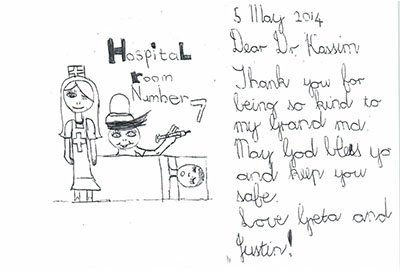 Hospital
room
Number
7
5 May 2014
Dear Dr Kassim
Thank you for
being so kind to
my Grand ma.
May God bless yo
and keep you
safe.
Love Greta and
Justin!